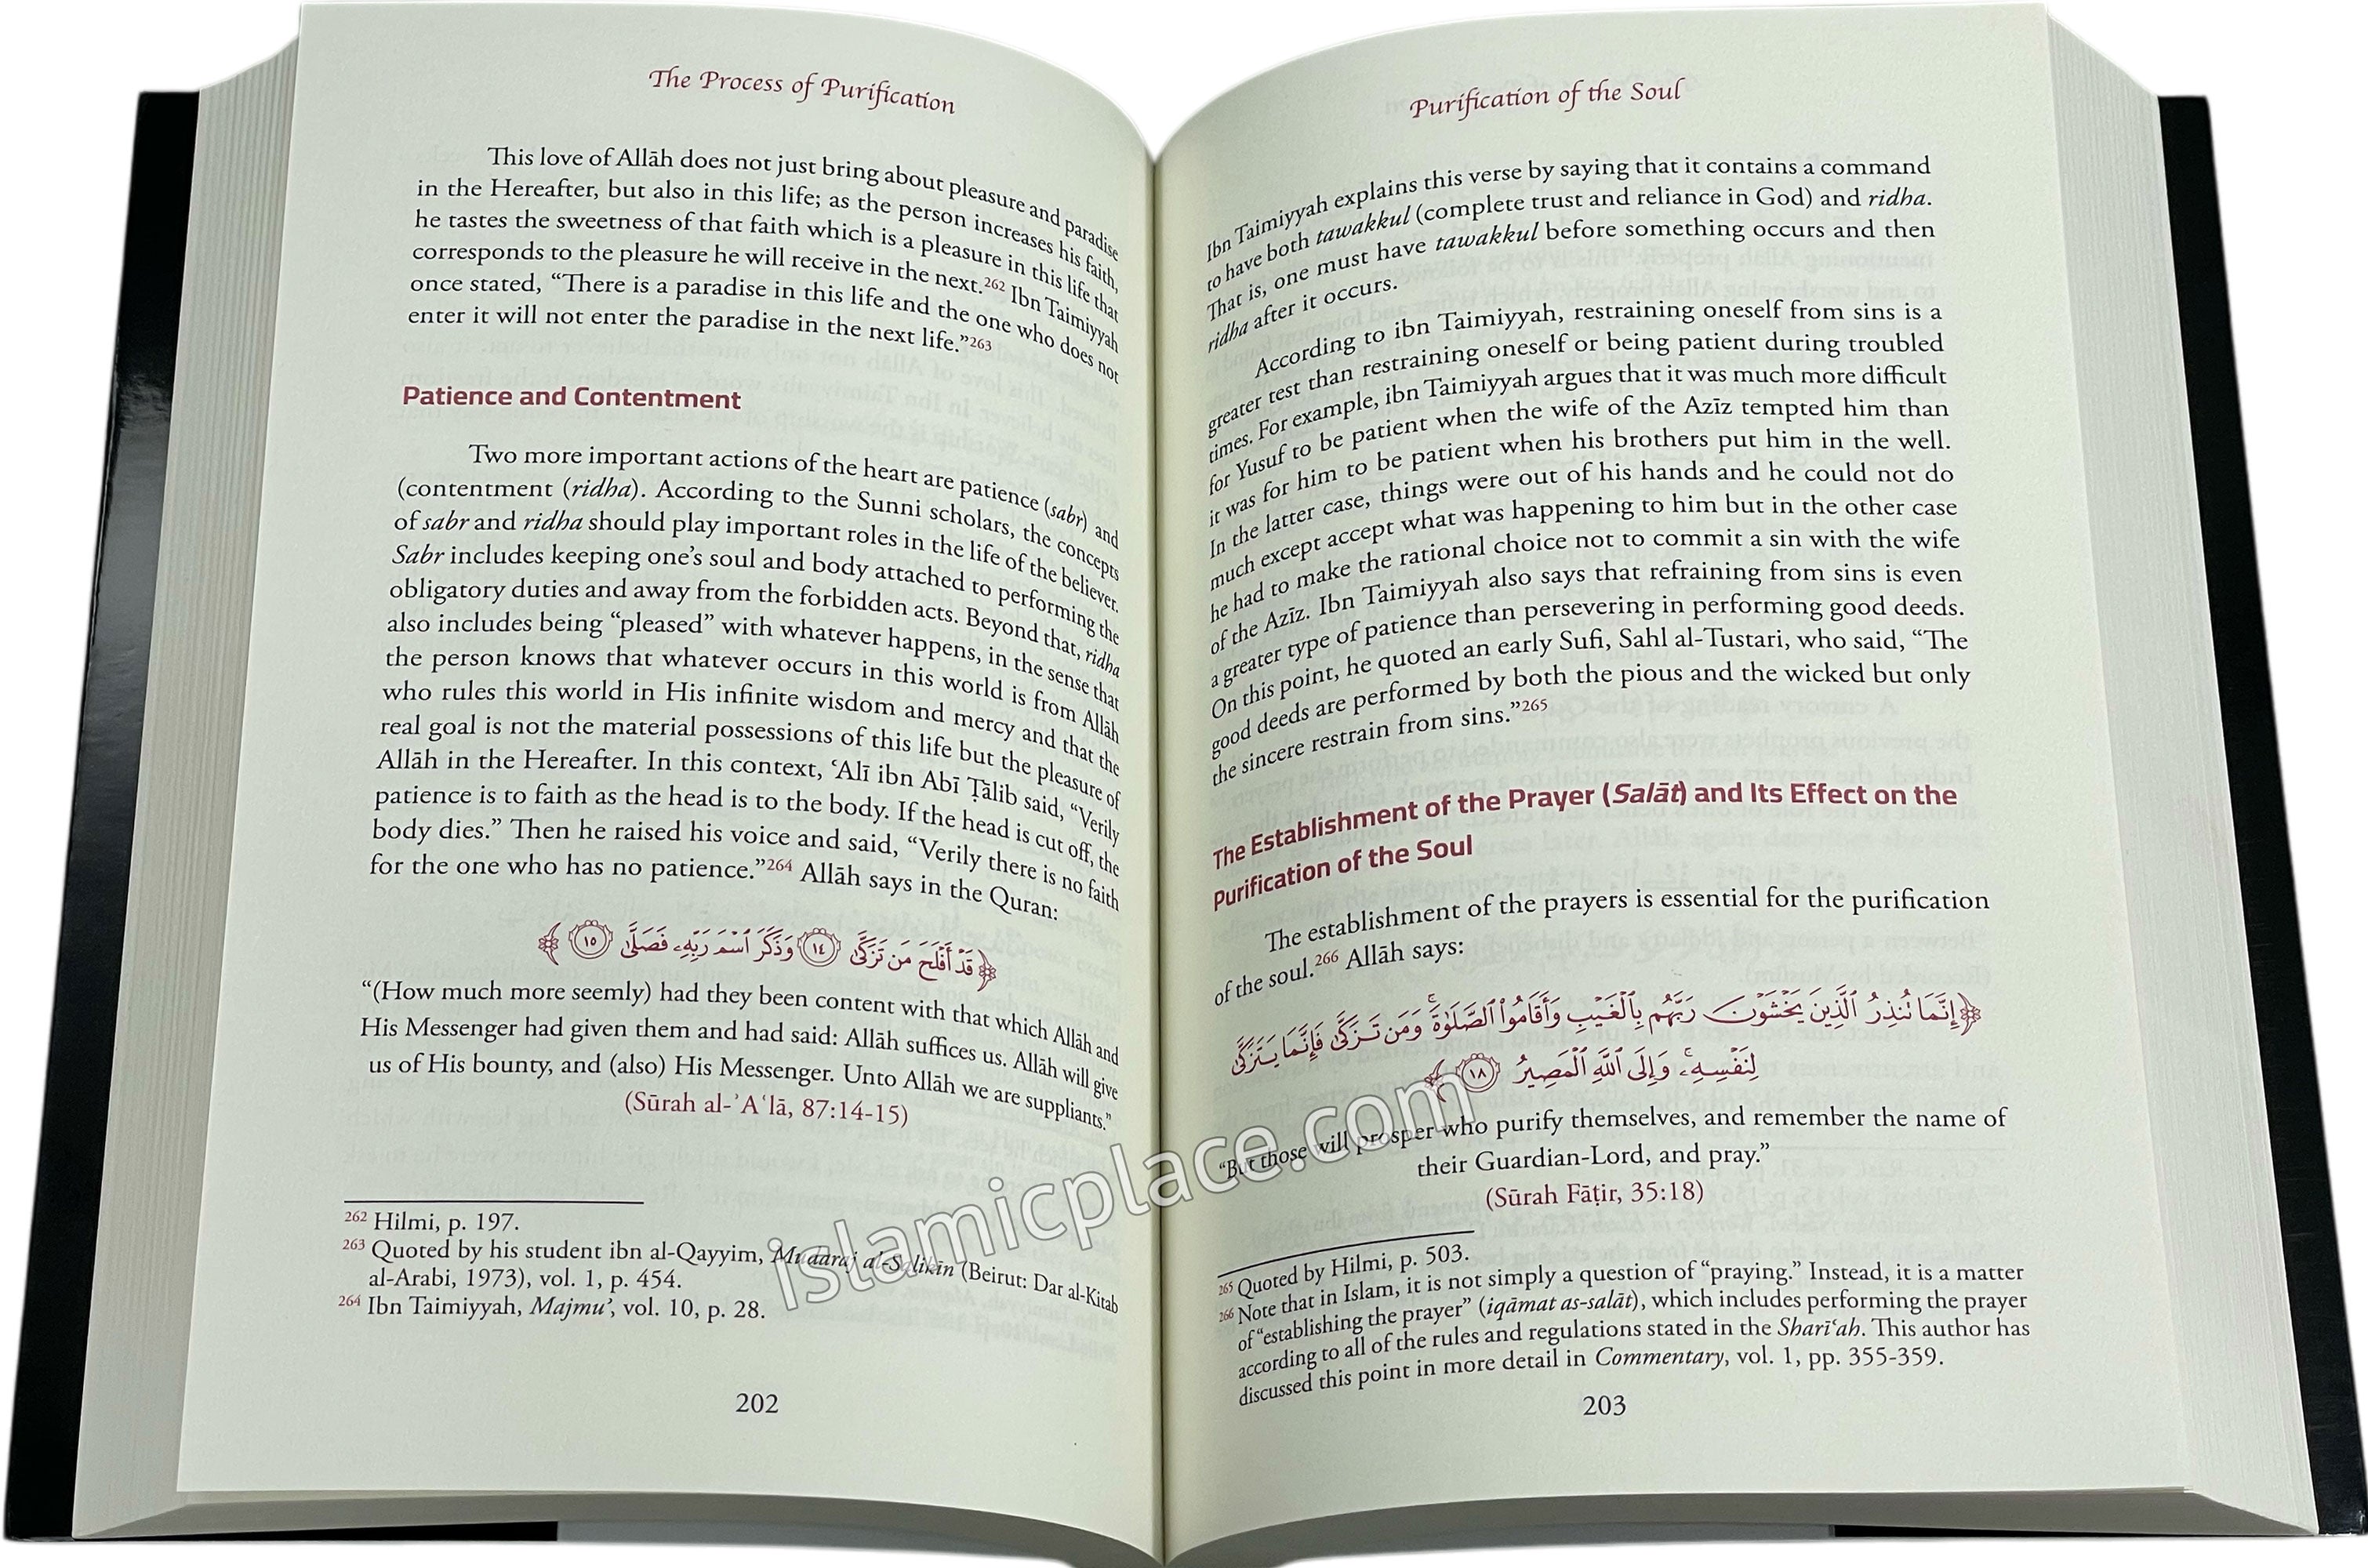 The Process of Purification
This love of Allāh does not just bring about pleasure and paradise
in the Hereafter, but also in this life; as the person increases his faith,
he tastes the sweetness of that faith which is a pleasure in this life that
corresponds to the pleasure he will receive in the next.262 Ibn Taimiyyah
once stated, “There is a paradise in this life and the one who does not
enter it will not enter the paradise in the next life.”263
Patience and Contentment
Two more important actions of the heart are patience (sabr) and
(contentment (ridha). According to the Sunni scholars, the concepts
of sabr and ridha should play important roles in the life of the believer.
Sabr includes keeping one’s soul and body attached to performing the
obligatory duties and away from the forbidden acts. Beyond that, ridha
also includes being “pleased” with whatever happens, in the sense that
the person knows that whatever occurs in this world is from Allāh
who rules this world in His infinite wisdom and mercy and that the
real goal is not the material possessions of this life but the pleasure of
Allāh in the Hereafter. In this context, ʿAlī ibn Abī Ṭālib said, “Verily
patience is to faith as the head is to the body. If the head is cut off, the
body dies.” Then he raised his voice and said, “Verily there is no faith
for the one who has no patience.”264 Allāh says in the Quran:
﴿قَدْ أَفْلَحَ مَن تَزَكَّىٰ ١٤ وَذَكَرَ ٱسْمَ رَبِّهِۦ فَصَلَّىٰ ١٥﴾
“(How much more seemly) had they been content with that which Allāh and
His Messenger had given them and had said: Allāh suffices us. Allāh will give
us of His bounty, and (also) His Messenger. Unto Allāh we are suppliants.”
(Sūrah al-ʾAʿlā, 87:14-15)
262 Hilmi, p. 197.
263 Quoted by his student ibn al-Qayyim, Mudaraj al-Salikīn (Beirut: Dar al-Kitab
al-Arabi, 1973), vol. 1, p. 454.
264 Ibn Taimiyyah, Majmu’, vol. 10, p. 28.
202
Purification of the Soul
Ibn Taimiyyah explains this verse by saying that it contains a command
to have both tawakkul (complete trust and reliance in God) and ridha.
That is, one must have tawakkul before something occurs and then
ridha after it occurs.
According to ibn Taimiyyah, restraining oneself from sins is a
greater test than restraining oneself or being patient during troubled
times. For example, ibn Taimiyyah argues that it was much more difficult
for Yusuf to be patient when the wife of the Azīz tempted him than
it was for him to be patient when his brothers put him in the well.
In the latter case, things were out of his hands and he could not do
much except accept what was happening to him but in the other case
he had to make the rational choice not to commit a sin with the wife
of the Azīz. Ibn Taimiyyah also says that refraining from sins is even
a greater type of patience than persevering in performing good deeds.
On this point, he quoted an early Sufi, Sahl al-Tustari, who said, “The
good deeds are performed by both the pious and the wicked but only
the sincere restrain from sins.”265
The Establishment of the Prayer (Salāt) and Its Effect on the
Purification of the Soul
The establishment of the prayers is essential for the purification
of the soul.266 Allāh says:
﴿إِنَّمَا تُنذِرُ ٱلَّذِينَ يَخْشَوْنَ رَبَّهُم بِٱلْغَيْبِ وَأَقَامُوا۟ ٱلصَّلَوٰةَ ۚ وَمَن تَزَكَّىٰ فَإِنَّمَا يَتَزَكَّىٰ
لِنَفْسِهِۦ ۚ وَإِلَى ٱللَّهِ ٱلْمَصِيرُ ١٨﴾
“But those will prosper who purify themselves, and remember the name of
their Guardian-Lord, and pray.”
(Sūrah Fāṭir, 35:18)
265 Quoted by Hilmi, p. 503.
266 Note that in Islam, it is not simply a question of “praying.” Instead, it is a matter
of “establishing the prayer” (iqāmat as-salāt), which includes performing the prayer
according to all of the rules and regulations stated in the Sharīʿah. This author has
discussed this point in more detail in Commentary, vol. 1, pp. 355-359.
203
islamicplace.com